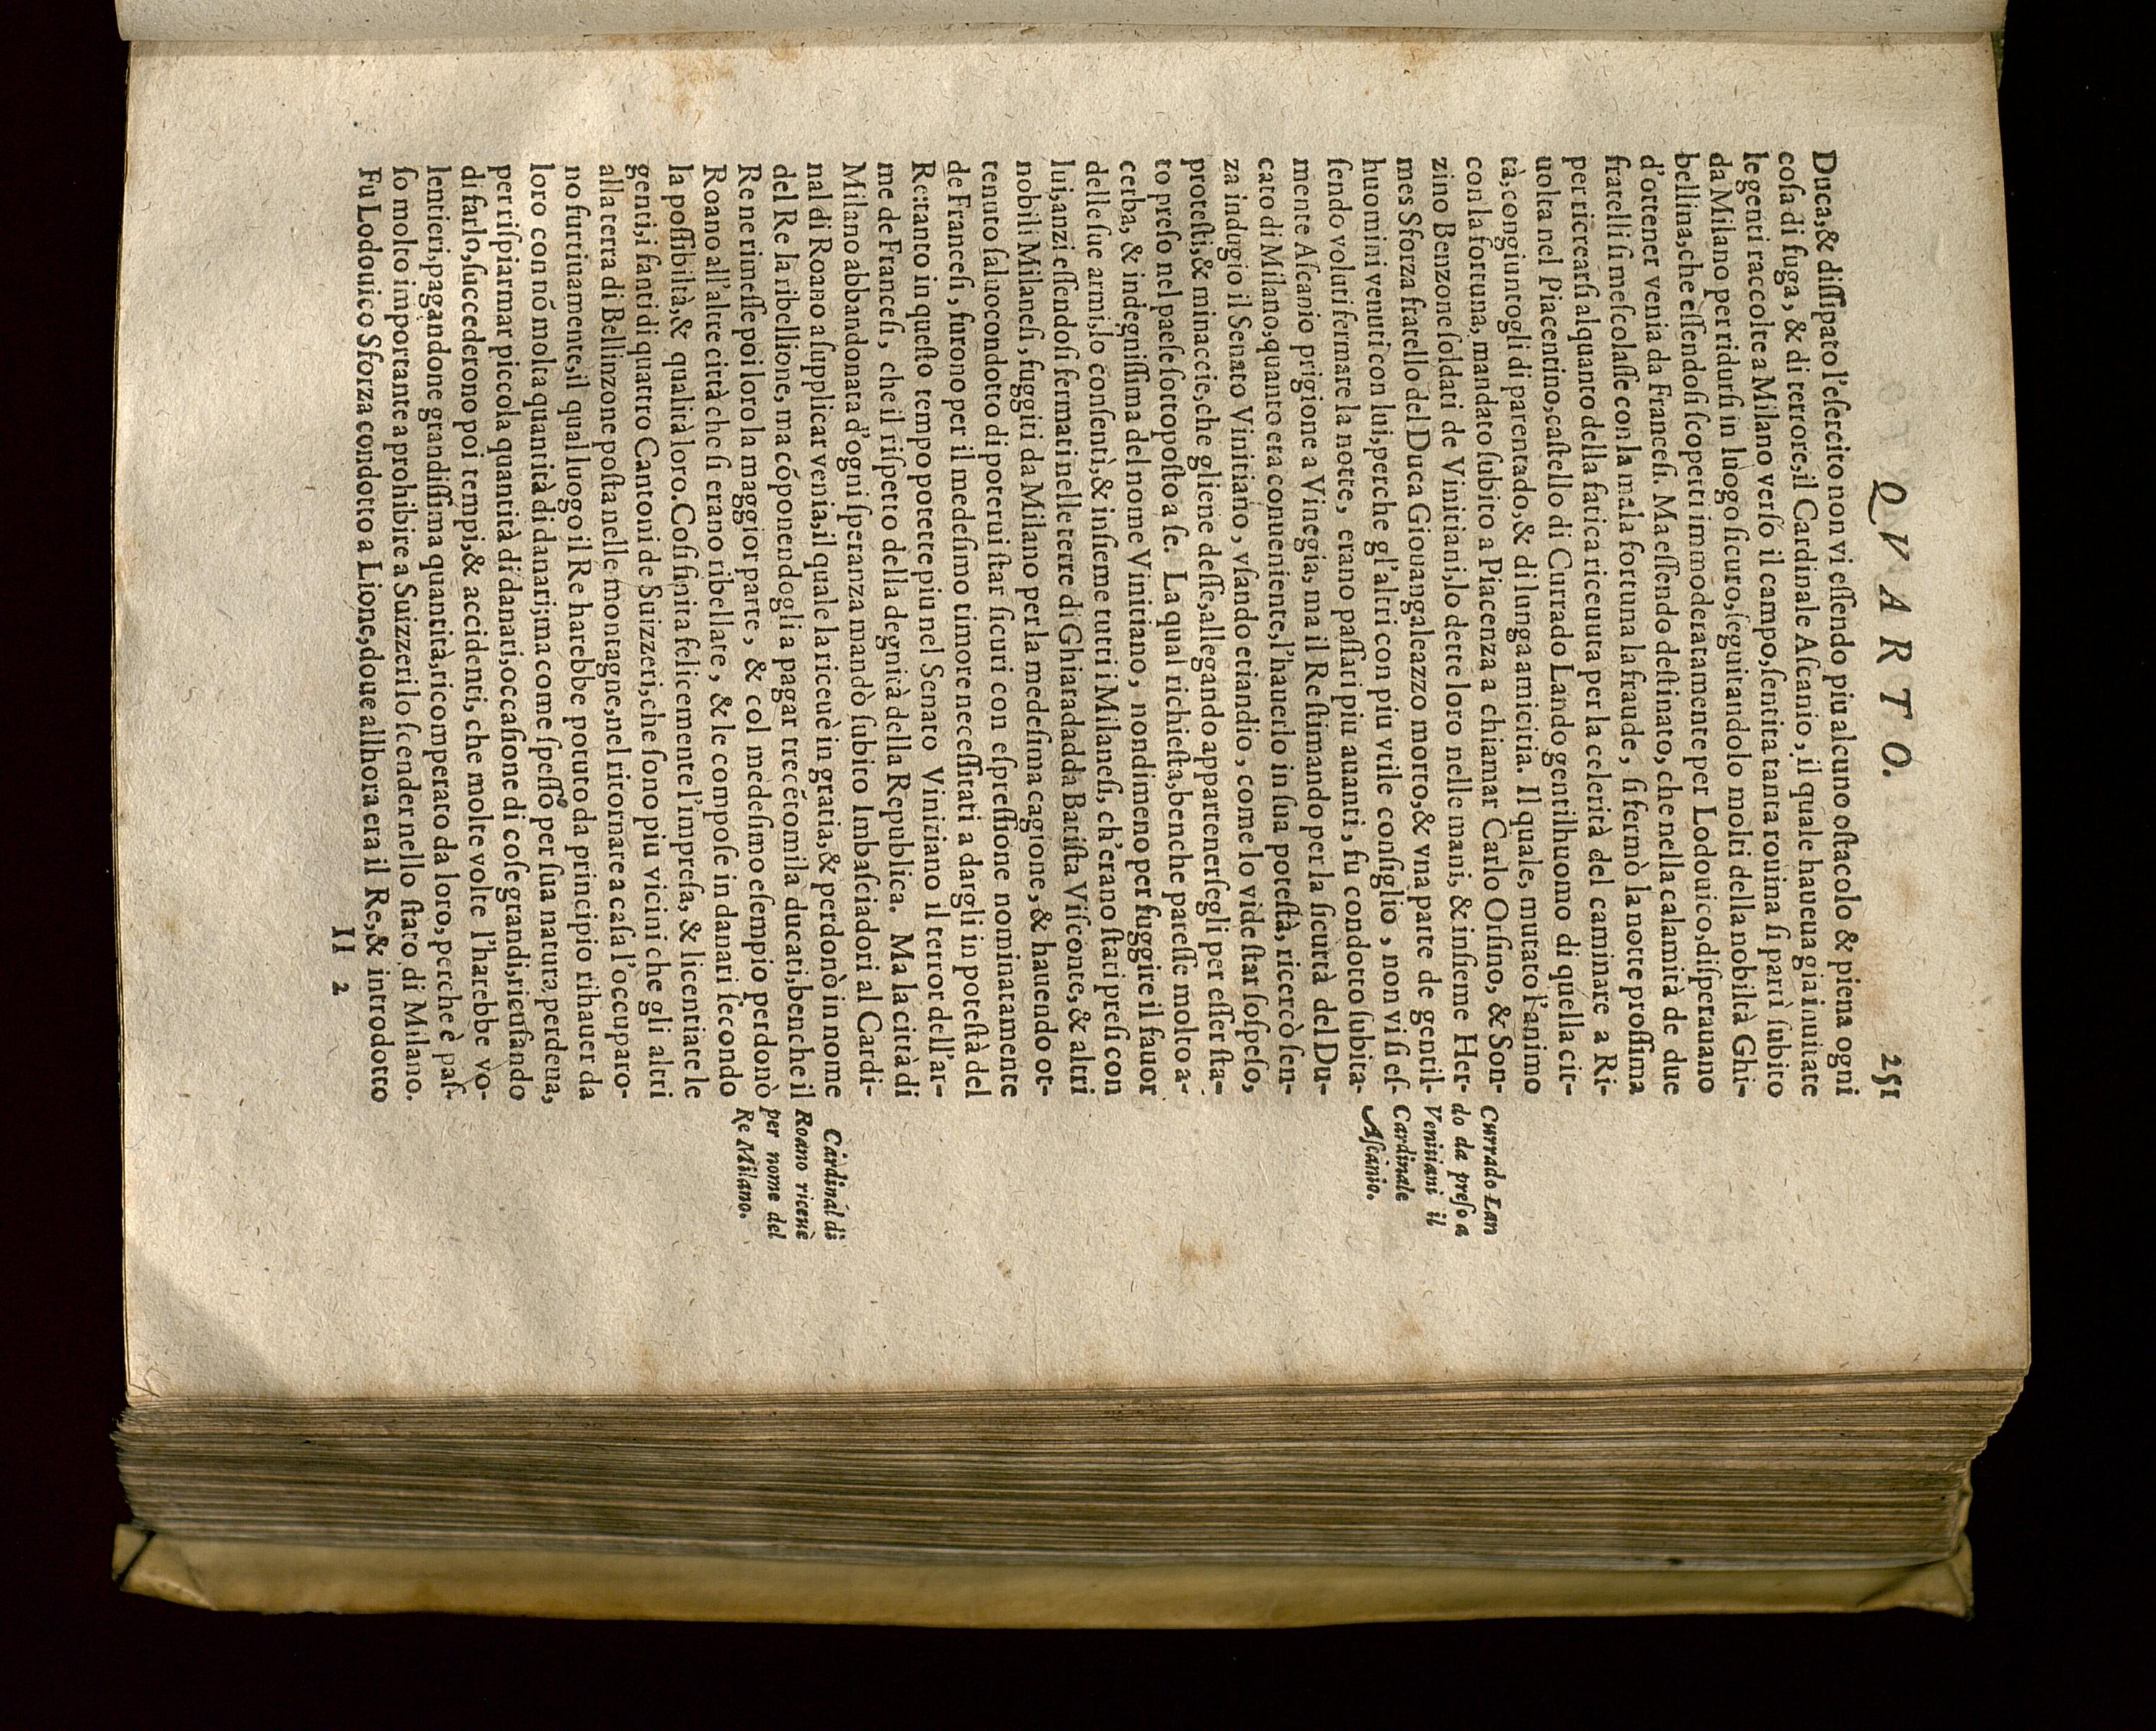 QVARTO. 251
Duca,& dissipato l'esercito non vi essendo piu alcuno ostacolo & piena ogni
cosa di fuga, & di terrore,il Cardinale Ascanio, il quale haueua gia inuitate
le genti raccolte a Milano verso il campo,sentita tanta rouina si partì subito
da Milano per ridursi in luogo sicuro,seguitandolo molti della nobiltà Ghi-
bellina,che essendosi scoperti immoderatamente per Lodouico,disperauano
d'ottener venia da Francesi. Ma essendo destinato, che nella calamità de due
fratelli si mescolasse con la mala fortuna la fraude, si fermò la notte prossima
per ricrearsi alquanto della fatica riceuuta per la celerità del caminare a Ri-
uolta nel Piacentino,castello di Currado Lando gentilhuomo di quella cit-
tà,congiuntogli di parentado,& di lunga amicitia. Il quale, mutato l'animo
con la fortuna, mandato subito a Piacenza a chiamar Carlo Orsino, & Son-
zino Benzone soldati de Vinitiani,lo dette loro nelle mani, & insieme Her-
mes Sforza fratello del Duca Giouangaleazzo morto,& vna parte de gentil-
huomini venuti con lui,perche gl'altri con piu vtile consiglio, non vi si es-
sendo voluti fermare la notte, erano passati piu auanti, fu condotto subita-
mente Ascanio prigione a Vinegia, ma il Re stimando per la sicurtà del Du-
cato di Milano,quanto era conueniente,l'hauerlo in sua potestà, ricercò sen-
za indugio il Senato Vinitiano, vsando etiandio, come lo vide star sospeso,
protesti,& minaccie,che gliene desse,allegando appartenersegli per esser sta-
to preso nel paese sottoposto a se. La qual richiesta,benche paresse molto a-
cerba, & indegnissima del nome Vinitiano, nondimeno per fuggire il fauor
delle sue armi,lo consentì,& insieme tutti i Milanesi, ch'erano stati presi con
lui,anzi essendosi fermati nelle terre di Ghiaradadda Batista Visconte,& altri
nobili Milanesi, fuggiti da Milano per la medesima cagione, & hauendo ot-
tenuto saluocondotto di poterui star sicuri con espressione nominatamente
de Francesi, furono per il medesimo timore necessitati a dargli in potestà del
Re:tanto in questo tempo potette piu nel Senato Vinitiano il terror dell'ar-
me de Francesi, che il rispetto della degnità della Republica. Ma la città di
Milano abbandonata d'ogni speranza mandò subito Imbasciadori al Cardi-
nal di Roano a supplicar venia,il quale la riceuè in gratia,& perdonò in nome
del Re la ribellione, ma cõponendogli a pagar trecẽtomila ducati,benche il
Re ne rimesse poi loro la maggior parte, & col medesimo esempio perdonò
Roano all'altre città che si erano ribellate, & le compose in danari secondo
la possibiltà,& qualità loro. Cosi finita felicemente l'impresa, & licentiate le
genti,i fanti di quattro Cantoni de Suizzeri,che sono piu vicini che gli altri
alla terra di Bellinzone posta nelle montagne,nel ritornare a casa l'occuparo-
no furtiuamente,il qual luogo il Re harebbe potuto da principio rihauer da
loro con nõ molta quantità di danari;ma come spesso per sua natura,perdeua,
per rispiarmar piccola quantità di danari,occasione di cose grandi,ricusando
di farlo,succederono poi tempi,& accidenti, che molte volte l'harebbe vo-
lentieri,pagandone grandissima quantità,ricomperato da loro, perche è pas-
so molto importante a prohibire a Suizzeri lo scender nello stato di Milano.
Fu Lodouico Sforza condotto a Lione,doue allhora era il Re,& introdotto
II 2
Currado Lan
do da preso a
Venitiani il
Cardinale
Ascanio.
Cardinal di
Roano riceuè
per nome del
Re Milano.